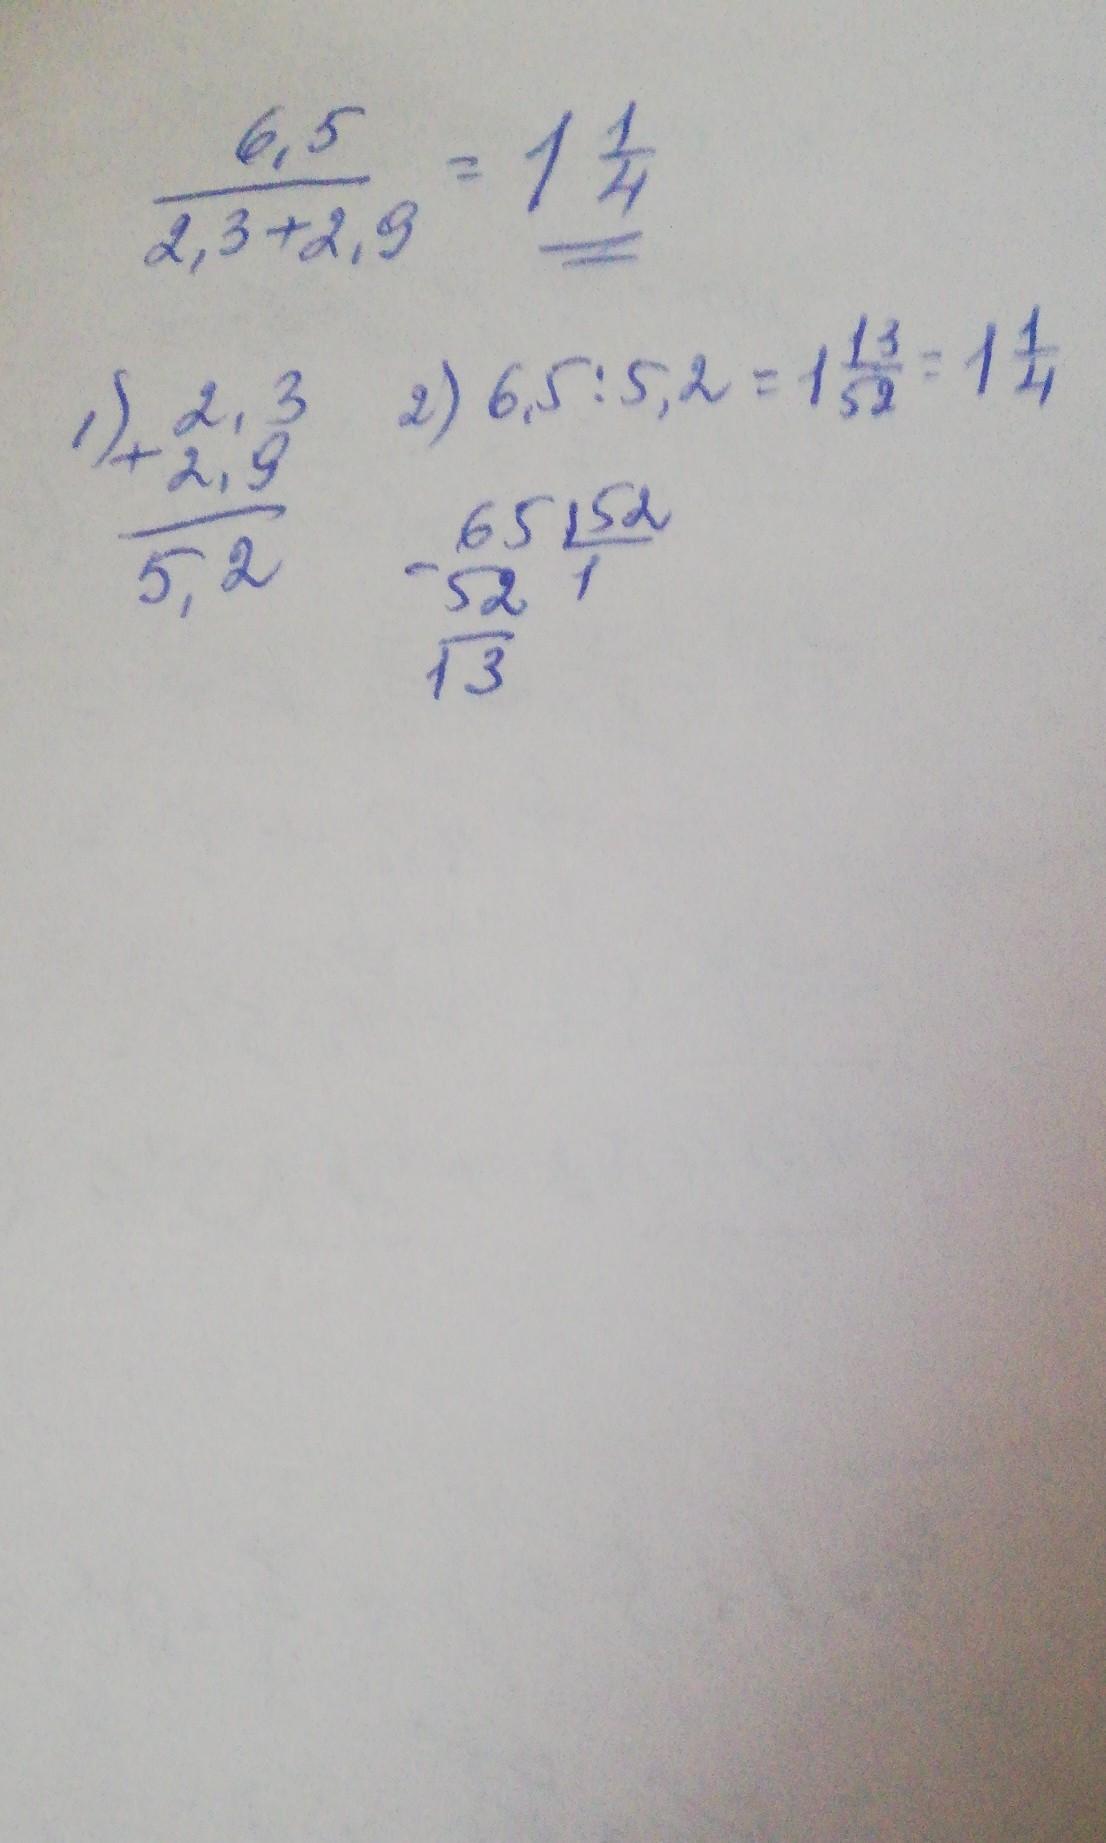 6,5
――― = 1 1/4
2,3+2,9
1) 2,3
+ 2,9
5,2
2) 6,5:5,2 = 1 13/52 = 1 1/4
65 | 52
- 52 1
13